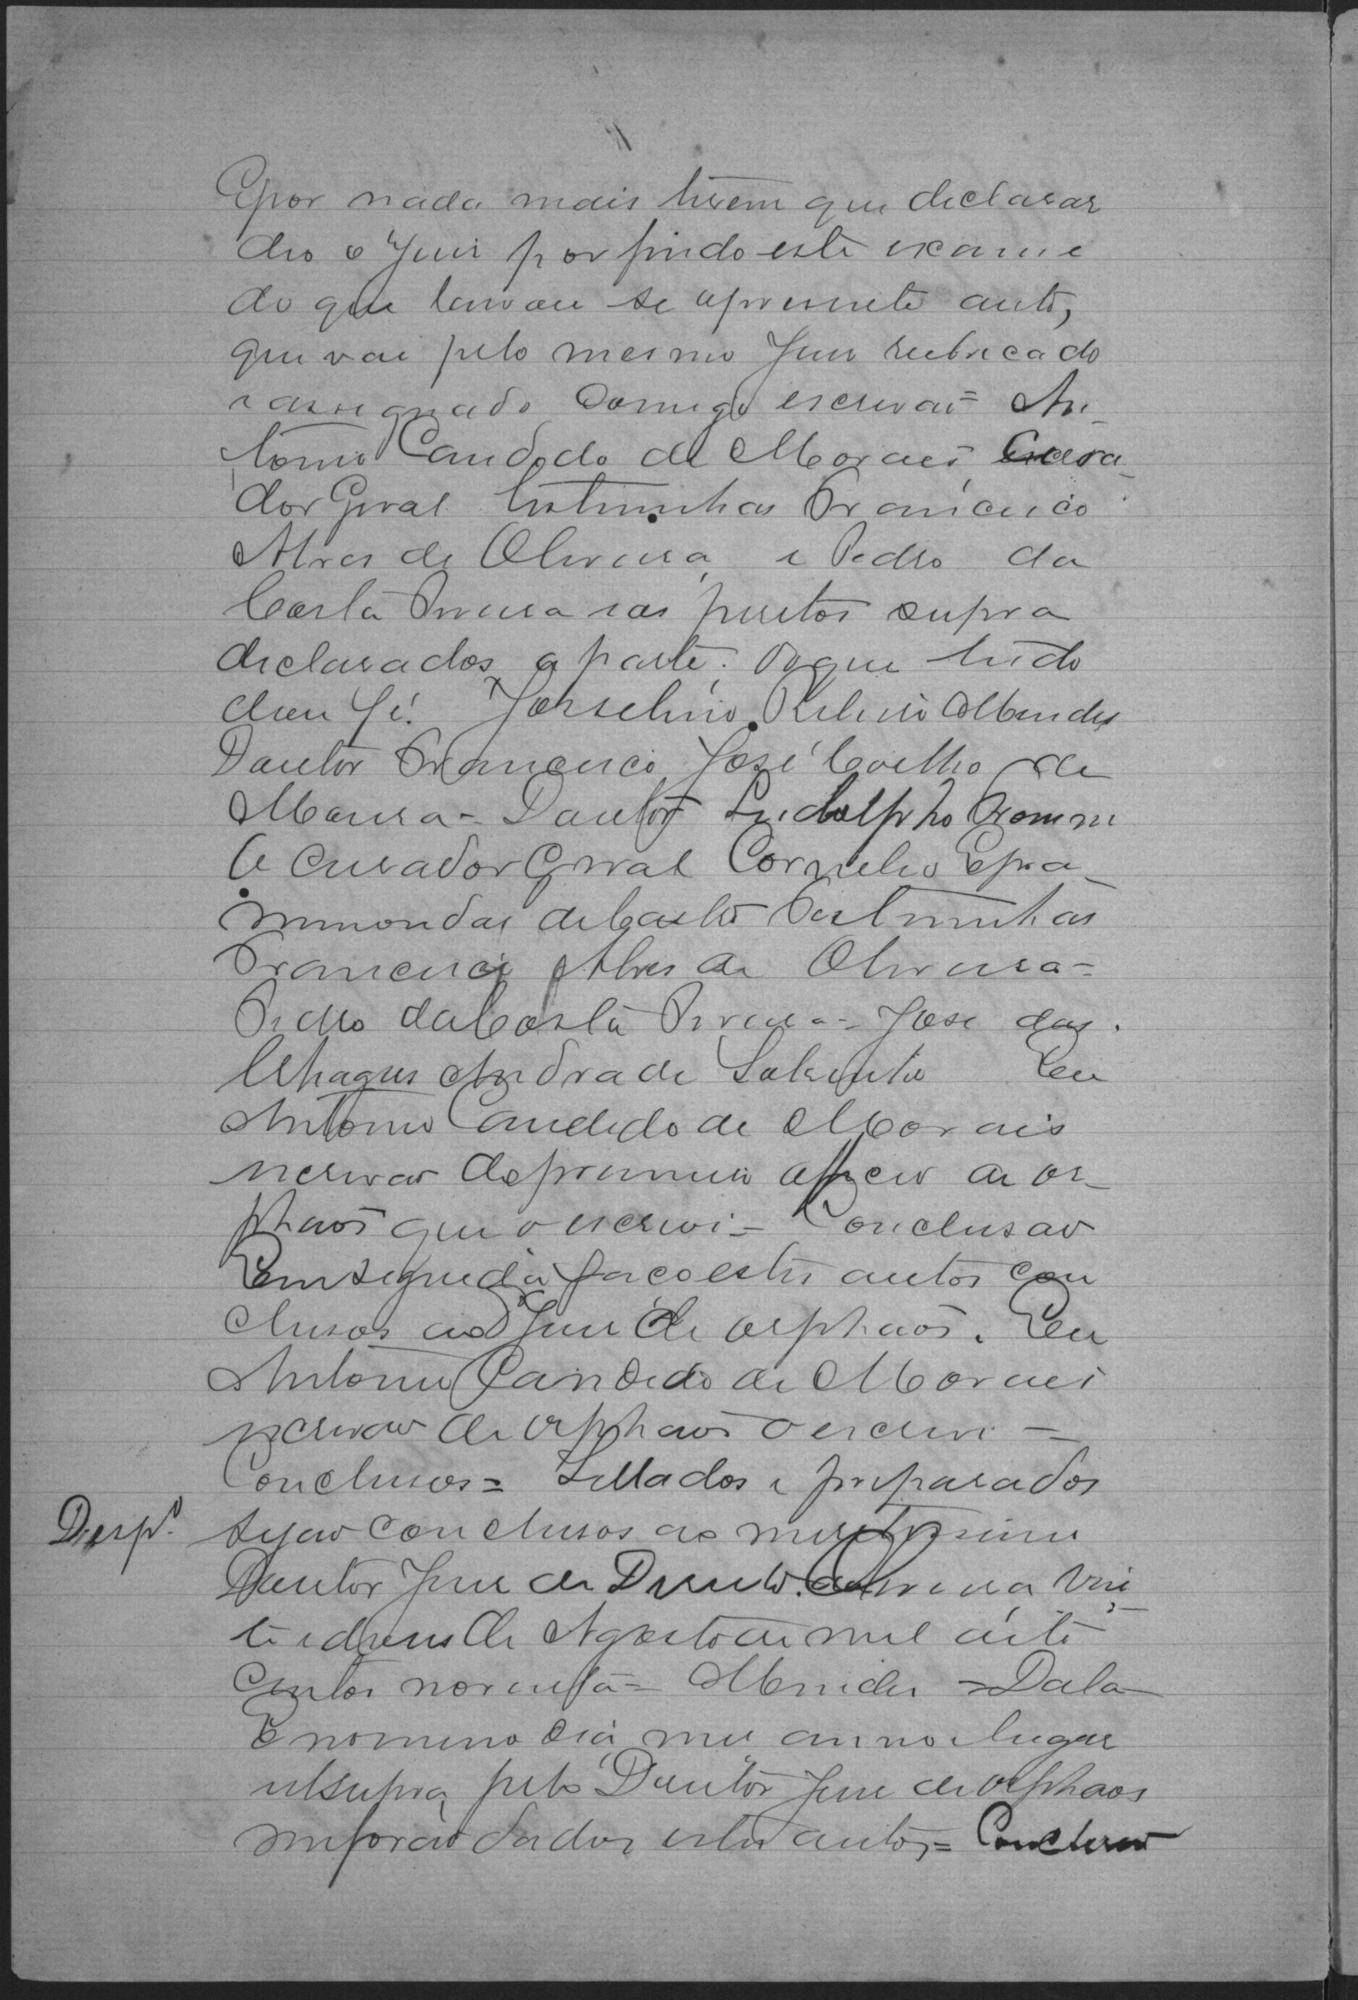 E por nada mais terem que declarar
deo o Juis por findo este exame
do que lavrou se o presente auto,
que vai pelo mesmo Juis rubricado
e assignado comigo escrivaõ = An-
tonio Candido de Moraes Cura-
dor Geral testimunhas Francisco
Alves de Oliveira e Pedro da
Costa Pereira e os peritos supra
declarados a parte. Do que tudo
dou fé. Josselino Ribeiro Mendes
Doutor Francisco José Coelho de
Moura - Doutor Ludolpho
O Curador Geral Cornelio Epa-
minondas de Castro Testimunhas
Francisco Alves de Oliveira =
Pedro da Costa Pereira = Jose das
Chagas Andrade Eu
Antonio Candido de Morais
escrivaõ do primeiro officio de or-
phaõs que o escrevi = Conclusaõ
Em seguida faço estes autos con
clusos ao Juis de orphaõs. Eu
Antonio Candido de Moraes
escrivaõ de orphaõs o escrevi =
Conclusos = Sellados e preparados
Desp.º sejaõ conclusos ao meretissimo
Doutor Juis de Direito. Oliveira vin-
te e de Agosto de mil oito
centos noventa = Mendes = Data
E no mesmo dia mes anno e lugar
utsupra, pelo Doutor Juis de orphaos
me foraõ dados estes autos, = Conclusaõ